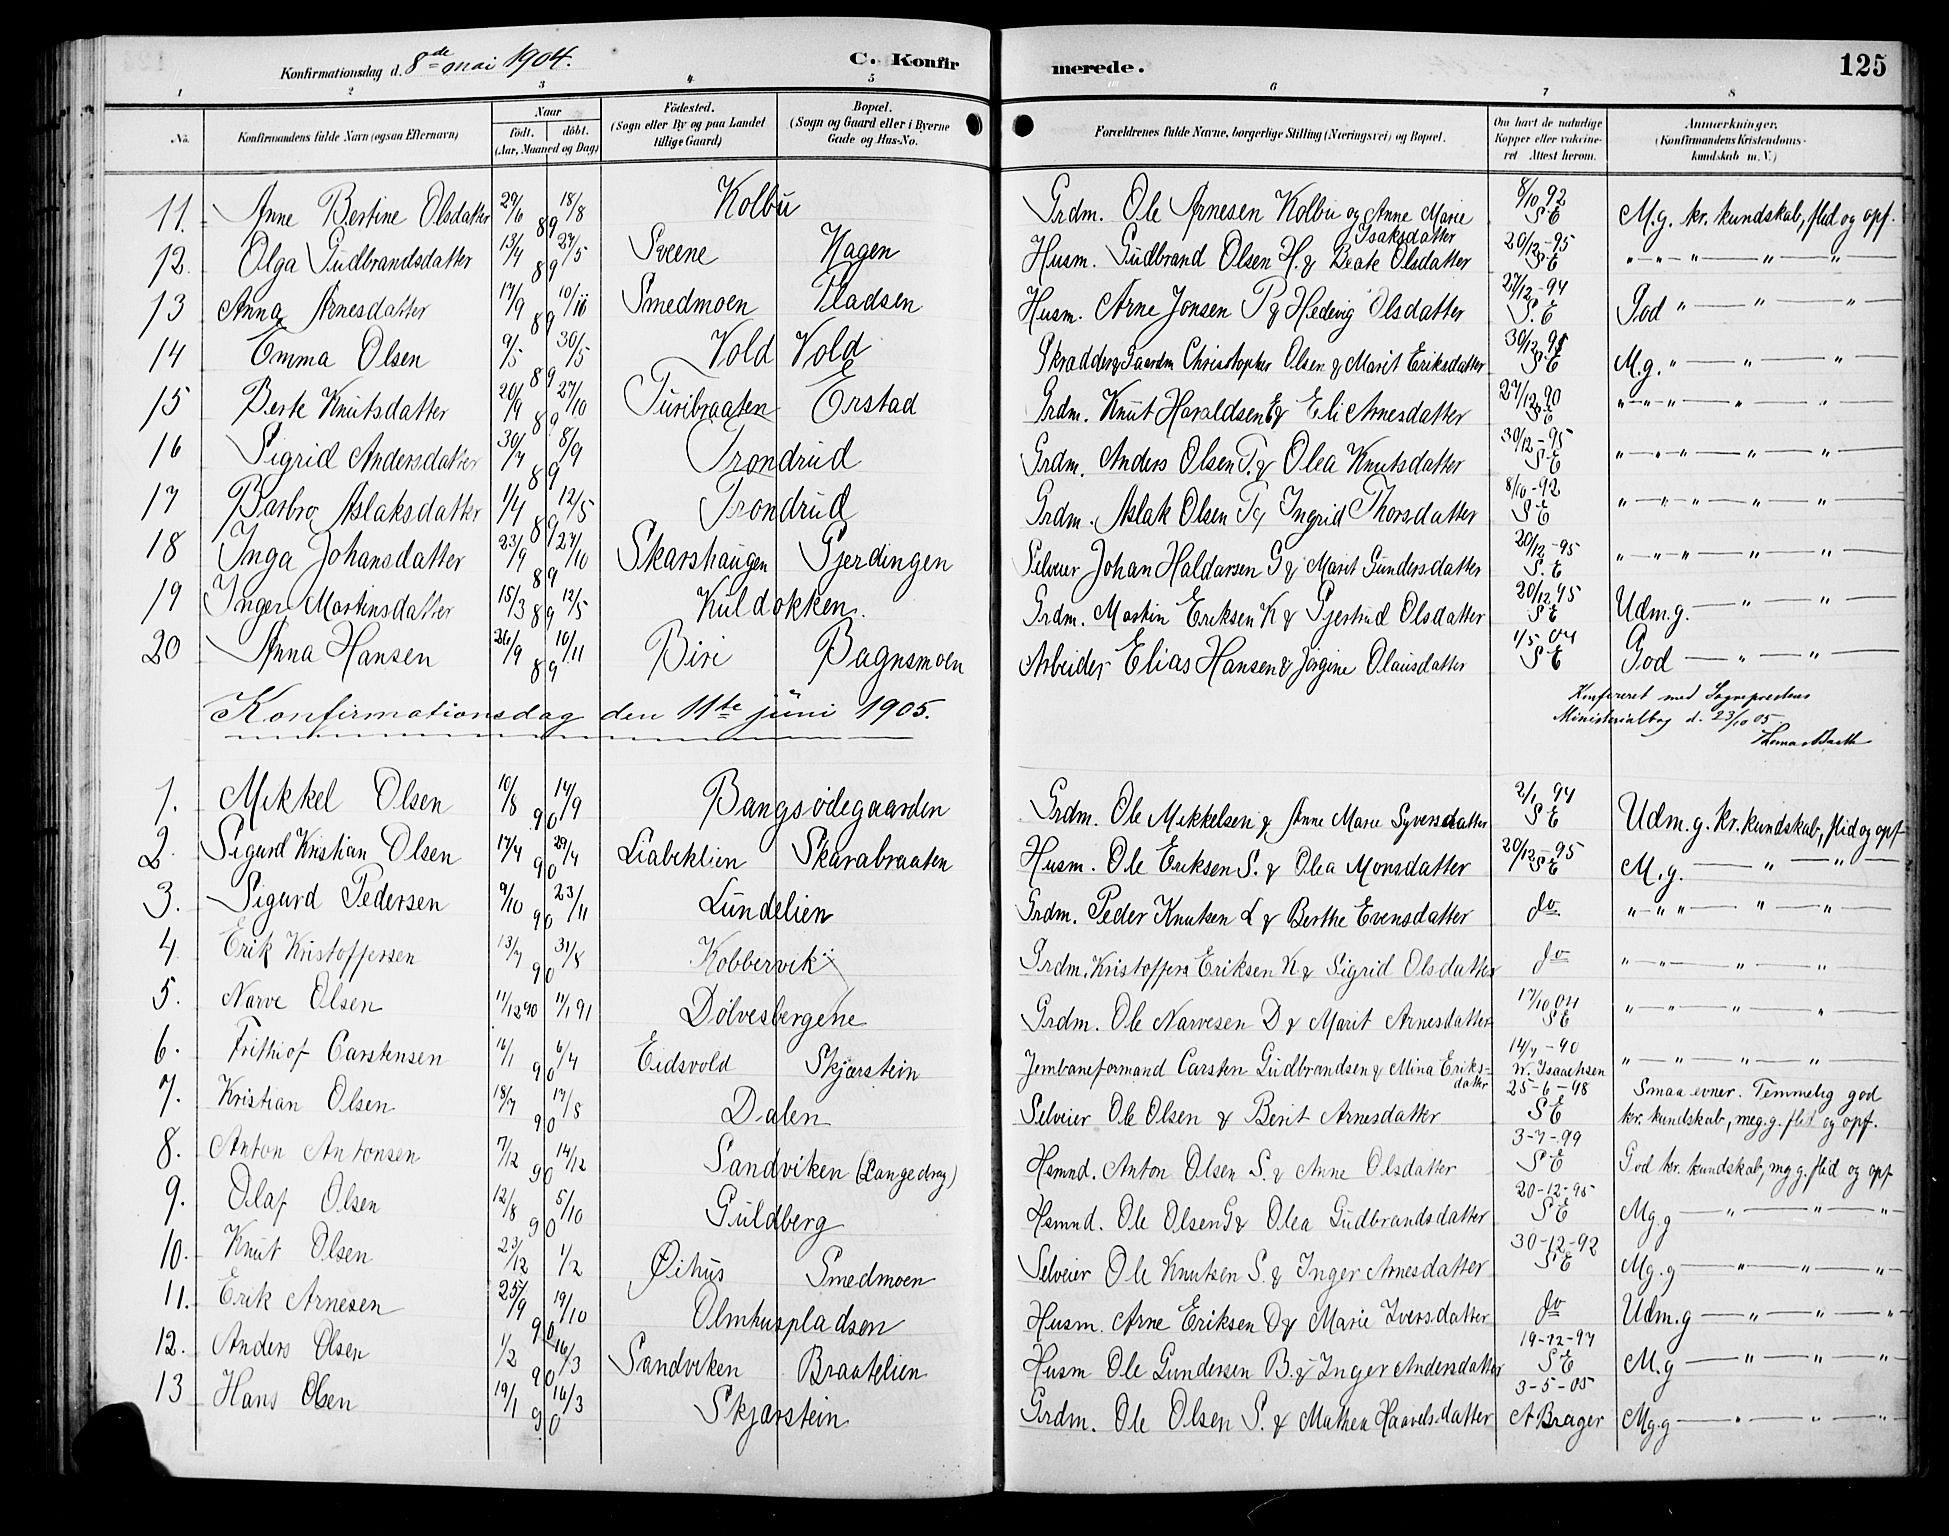 Konfirmationsdag d. 8de mai 1904.
C. Konfirmerede.
125
1 2 3 4 5 6 7 8
No. Konfirmandens fulde Navn (ogsaa Efternavn) Naar født. døbt. (Aar, Maaned og Dag) Fødested. (Sogn eller By og paa Landet tillige Gaard) Bopæl. (Sogn og Gaard eller i Byerne Gade og Hus-No. Forældrenes fulde Navne, borgerlige Stilling (Næringsvei) og Bopæl. Om havt de naturlige Kopper eller vakcineret Attest herom. Anmærkninger. (Konfirmandens Kristendomskundskab m. V.)
11. Anne Bertine Olsdatter 29/6 89 18/8 Kolbu Grdm. Ole Arnesen Kolbu og Anne Marie Isaksdatter 8/10 92 S E M.g. kr. kundskab, flid og opf.
12. Olga Gudbrandsdatter 13/4 89 27/5 Sveene Hagen Husm. Gudbrand Olsen H. & Beate Olsdatter 20/12-95 S E " " " " "
13 Anna Arnesdatter 17/9 89 10/11 Smedmoen Pladsen Husm. Arne Jonsen P & Hedevig Olsdatter 27/12-94 S. E God " " "
14 Emma Olsen 9/5 89 30/5 Vold Vold Skrædder & Gaardm Christopher Olsen & Marit Eriksdatter 30/12 95 S E M.g. " " "
15 Berte Knutsdatter 20/9 89 27/10 Turibraaten Erstad Grdm. Knut Haraldsen E & Eli Arnesdatter 27/12 90 S E " " " " "
16 Sigrid Andersdatter 30/7 89 8/9 Trondrud Grdm. Anders Olsen T. & Olea Knutsdatter 30/12-95 S E " " " " "
17 Barbro Aslaksdatter 1/4 89 12/5 Trondrud Grdm. Aslak Olsen T & Ingrid Thorsdatter 8/10-92 S E " " " " "
18 Inga Johansdatter 23/9 89 27/10 Skarshaugen Gjerdingen Selveier Johan Haldorsen G & Marit Gundersdatter 20/12-95 S. E " " " " "
19 Inger Martinsdatter 15/3 89 12/5 Kuldokken. Grdm. Martin Eriksen K & Gjertrud Olsdatter 20/12 95 S E Udm.g. " "
20 Anna Hansen 26/9 89 10/11 Biri Bagnsmoen Arbeider Elias Hansen & Jørgine Olausdatter 1/5-04 S E God " "
Konfirmationsdag den 11te juni 1905.
Konfereret med Sogneprestens
Ministerialbog d. 23/10 05.
Thomas Barth
1. Mikkel Olsen 10/8 90 14/9 Bangsødegaarden Grdm. Ole Mikkelsen & Anne Marie Syversdatter 2/1 94 S E Udm. g. kr. kundskab, flid og opf
2. Sigurd Kristian Olsen 17/4 90 29/4 Liabiklien Skarabraaten Husm. Ole Eriksen S. & Olea Monsdatter 20/12-95 S E M.g. " " "
3. Sigurd Pedersen 9/10 90 23/11 Lundelien Grdm. Peder Knutsen L & Berthe Evensdatter do " " " " "
4. Erik Kristoffersen 13/7 90 31/8 Kobbervik Grdm. Kristoffers Eriksen K & Sigrid Olsdatter do " " " "
5. Narve Olsen 11/12 90 11/1 91 Dølvesbergene Grdm. Ole Narvesen D & Marit Arnesdatter 17/10 04 S E " " " "
6. Frithiof Carstensen 16/1 90 6/4 Eidsvold Skjærstein Jernbaneformand Carsten Gudbrandsen & Mina Eriksdatter 14/7-90 W. Isaachsen " " " "
7. Kristian Olsen 18/7 90 17/8 Dalen Selveier Ole Olsen & Berit Arnesdatter 25-6-98 S E Smaa evner. Temmelig god kr. kundskab, meg. g. flid og opf.
8. Anton Antonsen 7/12 90 14/12 Sandviken (Langedrag) Hsmnd. Anton Olsen S. & Anne Olsdatter 3-7-99 S E God kr. kundskab, mg g. flid og opf
9. Olaf Olsen 12/8 90 5/10 Guldberg Hsmnd. Ole Olsen G & Olea Gudbrandsdatter 20-12-95 S E Mg.g " " "
10. Knut Olsen 23/12 1/2 Øihus Smedmoen Selveier Ole Knutsen S. & Inger Arnesdatter 30-12-92 S E Mg.g " " "
11. Erik Arnesen 25/9 90 19/10 Olmhuspladsen Husm. Arne Eriksen O & Marie Iversdatter do Udm.g " " "
12. Anders Olsen 1/2 90 16/3 Sandviken Braatelien Husm Ole Gundersen B. & Inger Andersdatter 19-12-97 S E M.g " " "
13 Hans Olsen 19/1 90 16/3 Skjærstein Grdm. Ole Olsen S. & Mathea Haavelsdatter 3-5-05 A Brager Mg.g " " "